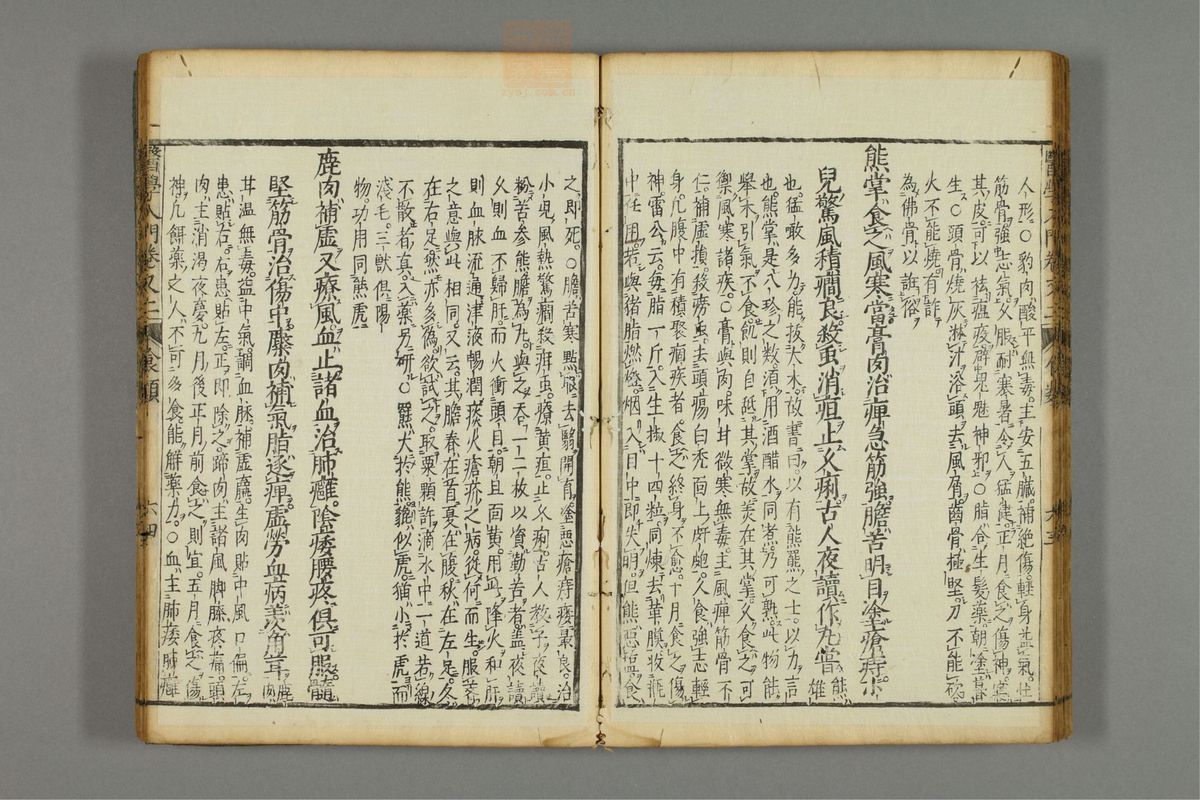 人形○豹肉酸平無毒主安五臟補絕傷輕身益氣壯
筋骨強志氣久服耐寒暑令人猛健正月食之傷神
其皮可以祛溫疫辟鬼魅神邪○脂合生髮藥朝塗暮
生○頭骨燒灰淋汁浴頭去風屑齒骨極堅刀不能砍
火不能燒有詐
為佛骨以誑俗
熊掌食之風寒當膏肉治痺急筋強膽苦明目塗瘡痔小
兒驚風積癇良殺蟲消疸止久痢古人夜讀作丸嘗
熊雄
也猛敢多力能拔大木故書曰以有熊羆之士以力言
也熊掌是八珍之數須用酒醋水同煮乃可熟此物能
舉木引氣不食飢則自舐其掌故美在其掌久食之可
禦風寒諸疾○膏與肉味甘微寒無毒主風痺筋骨不
仁補虛損殺癆蟲去頭瘍白禿面上皯皰人食強志輕
身凡腹中有積聚痼疾者食之終身不愈十月食之傷
神雷公云每脂一斤入生椒十四粒同煉去革膜收瓶
中任用若與猪脂燃燈烟入目中即失明但熊惡鹽食
之即死○膽苦寒點眼去翳開盲塗惡瘡痔瘻最良治
小兒風熱驚癇殺疳蟲療黃疸止久痢古人教子夜讀
粉苦參熊膽為丸與之吞一二枚以資勤苦者盖夜讀
久則血不歸肝而火衝頭目朝且面黃用此降火和肝
則血脉流通津液暢潤痰火瘡疥之病從何而生服參
之意與此相同又云其膽春在首夏在腹秋在左足冬
在右足然亦多偽欲試之取粟顆許滴水中一道若線
不散者真入藥另研○羆大於熊貔似虎猫小於虎而
淺毛三獸俱陽
物功用同熊虎
鹿肉補虛又療風血止諸血治肺癰陰痿腰疼俱可服髓
堅筋骨治傷中麋肉補氣脂逐痺虛勞血病羨角茸
鹿肉
甘溫無毒益中氣調血脉補虛羸生肉貼中風口偏左
患貼右右患貼左正即除之蹄肉主諸風脚膝疼痛頭
肉主消渴夜夢九月後正月前食之則宜五月食之傷
神凡餌藥之人不可多食能解藥力○血主肺痿肺癰
醫學入門卷之二
食類
六四